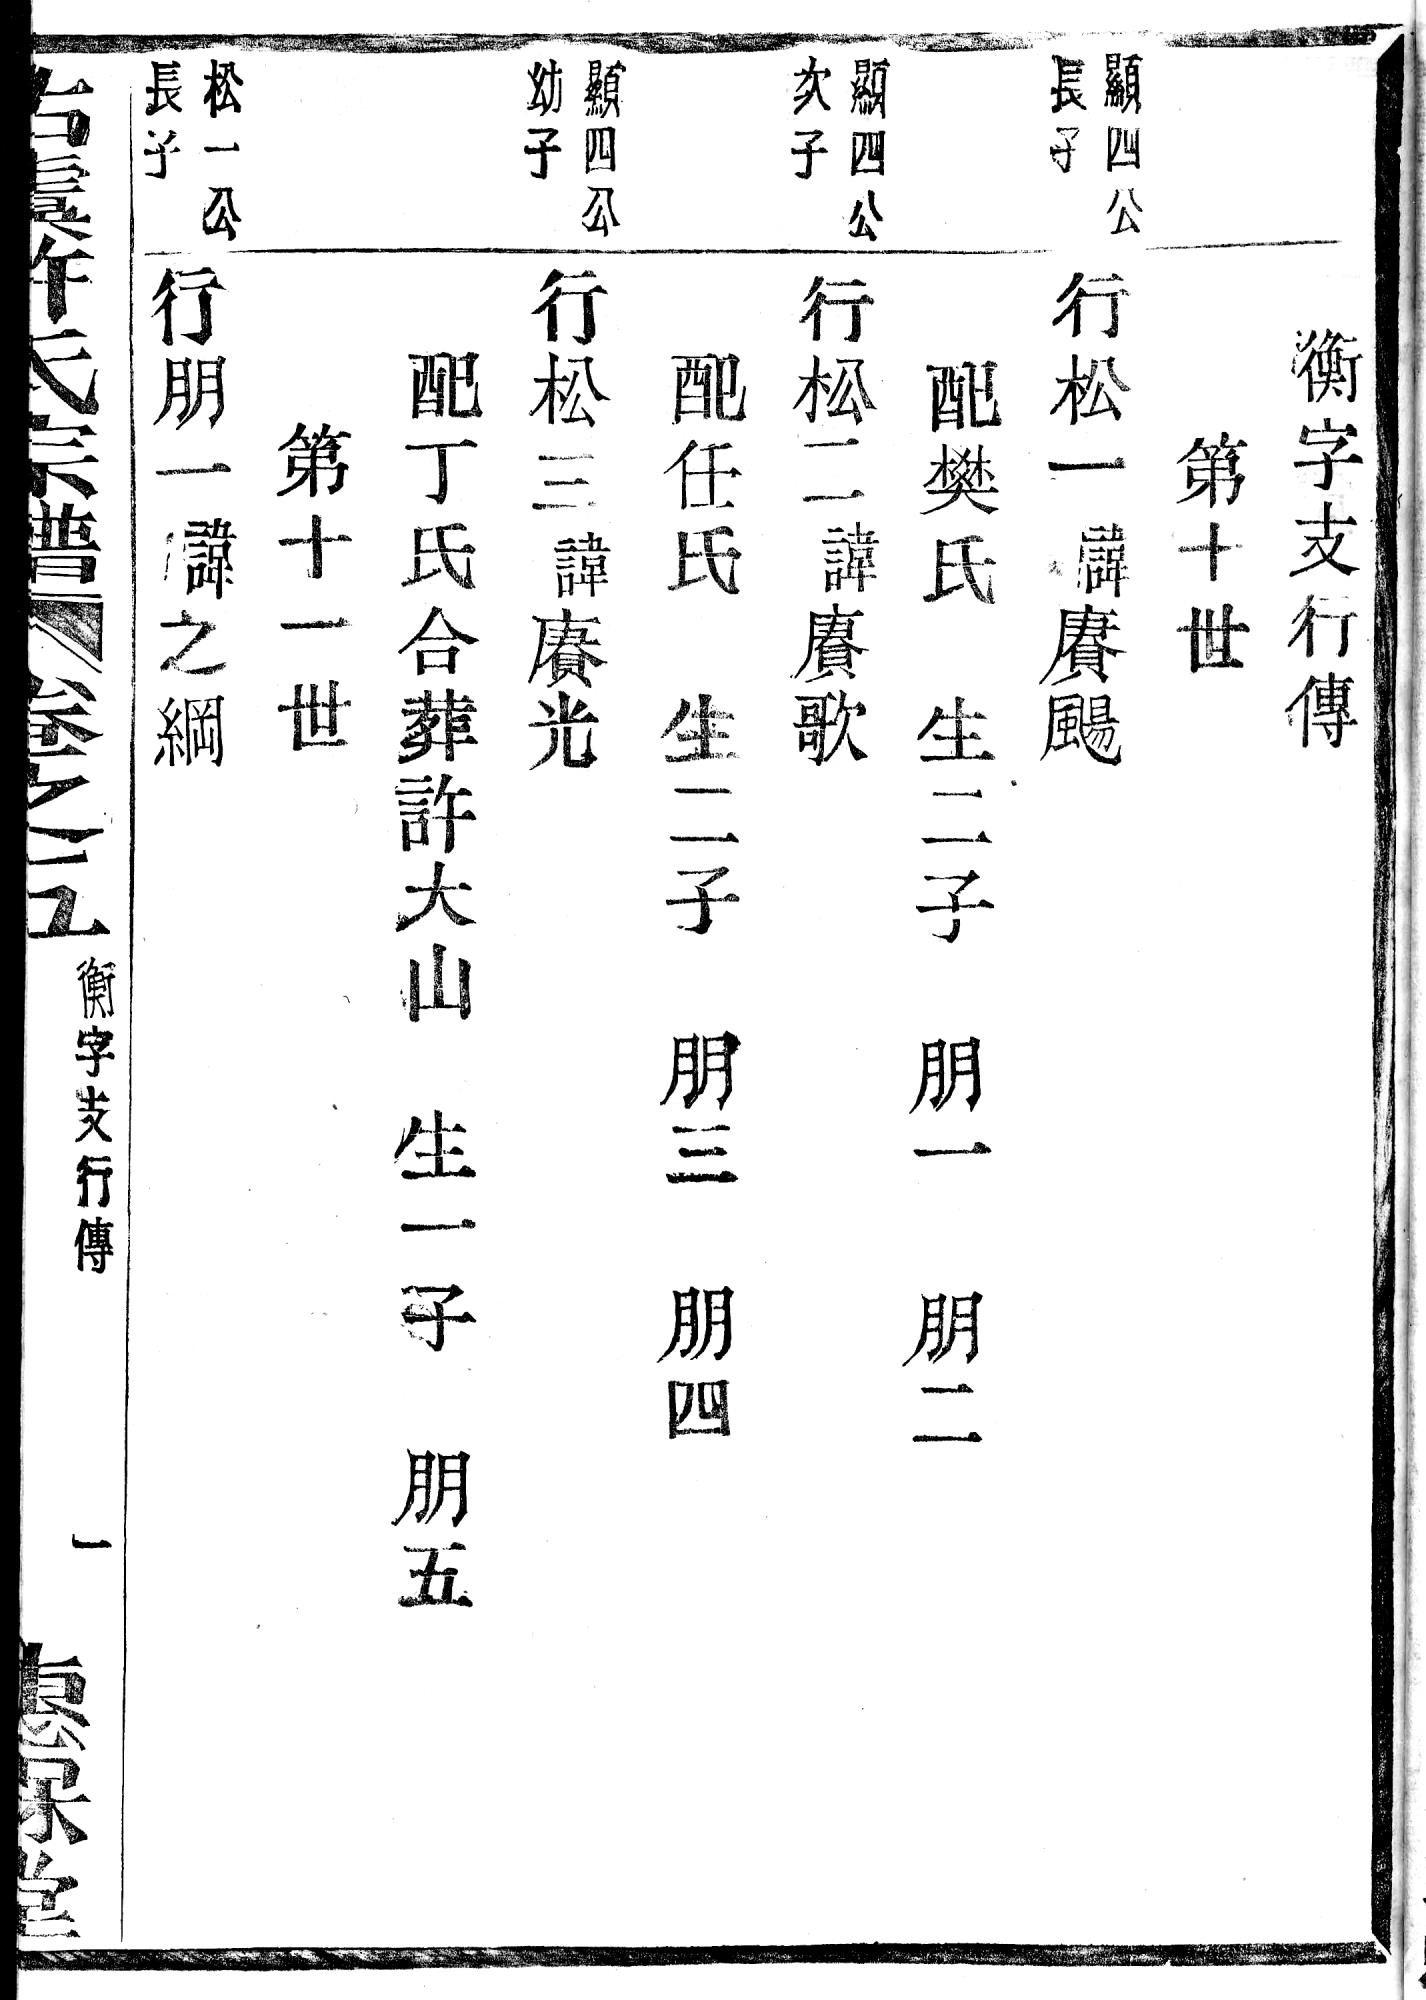 衡字支行傳
第十世
顯四公
長子
行松一諱賡颺
配樊氏 生二子 朋一 朋二
顯四公
次子
行松二諱賡歌
配任氏 生二子 朋三 朋四
顯四公
幼子
行松三諱賡光
配丁氏合葬許大山 生一子 朋五
第十一世
松一公
長子
行朋一諱之綱
古虞許氏宗譜 卷之五
衡字支行傳
一